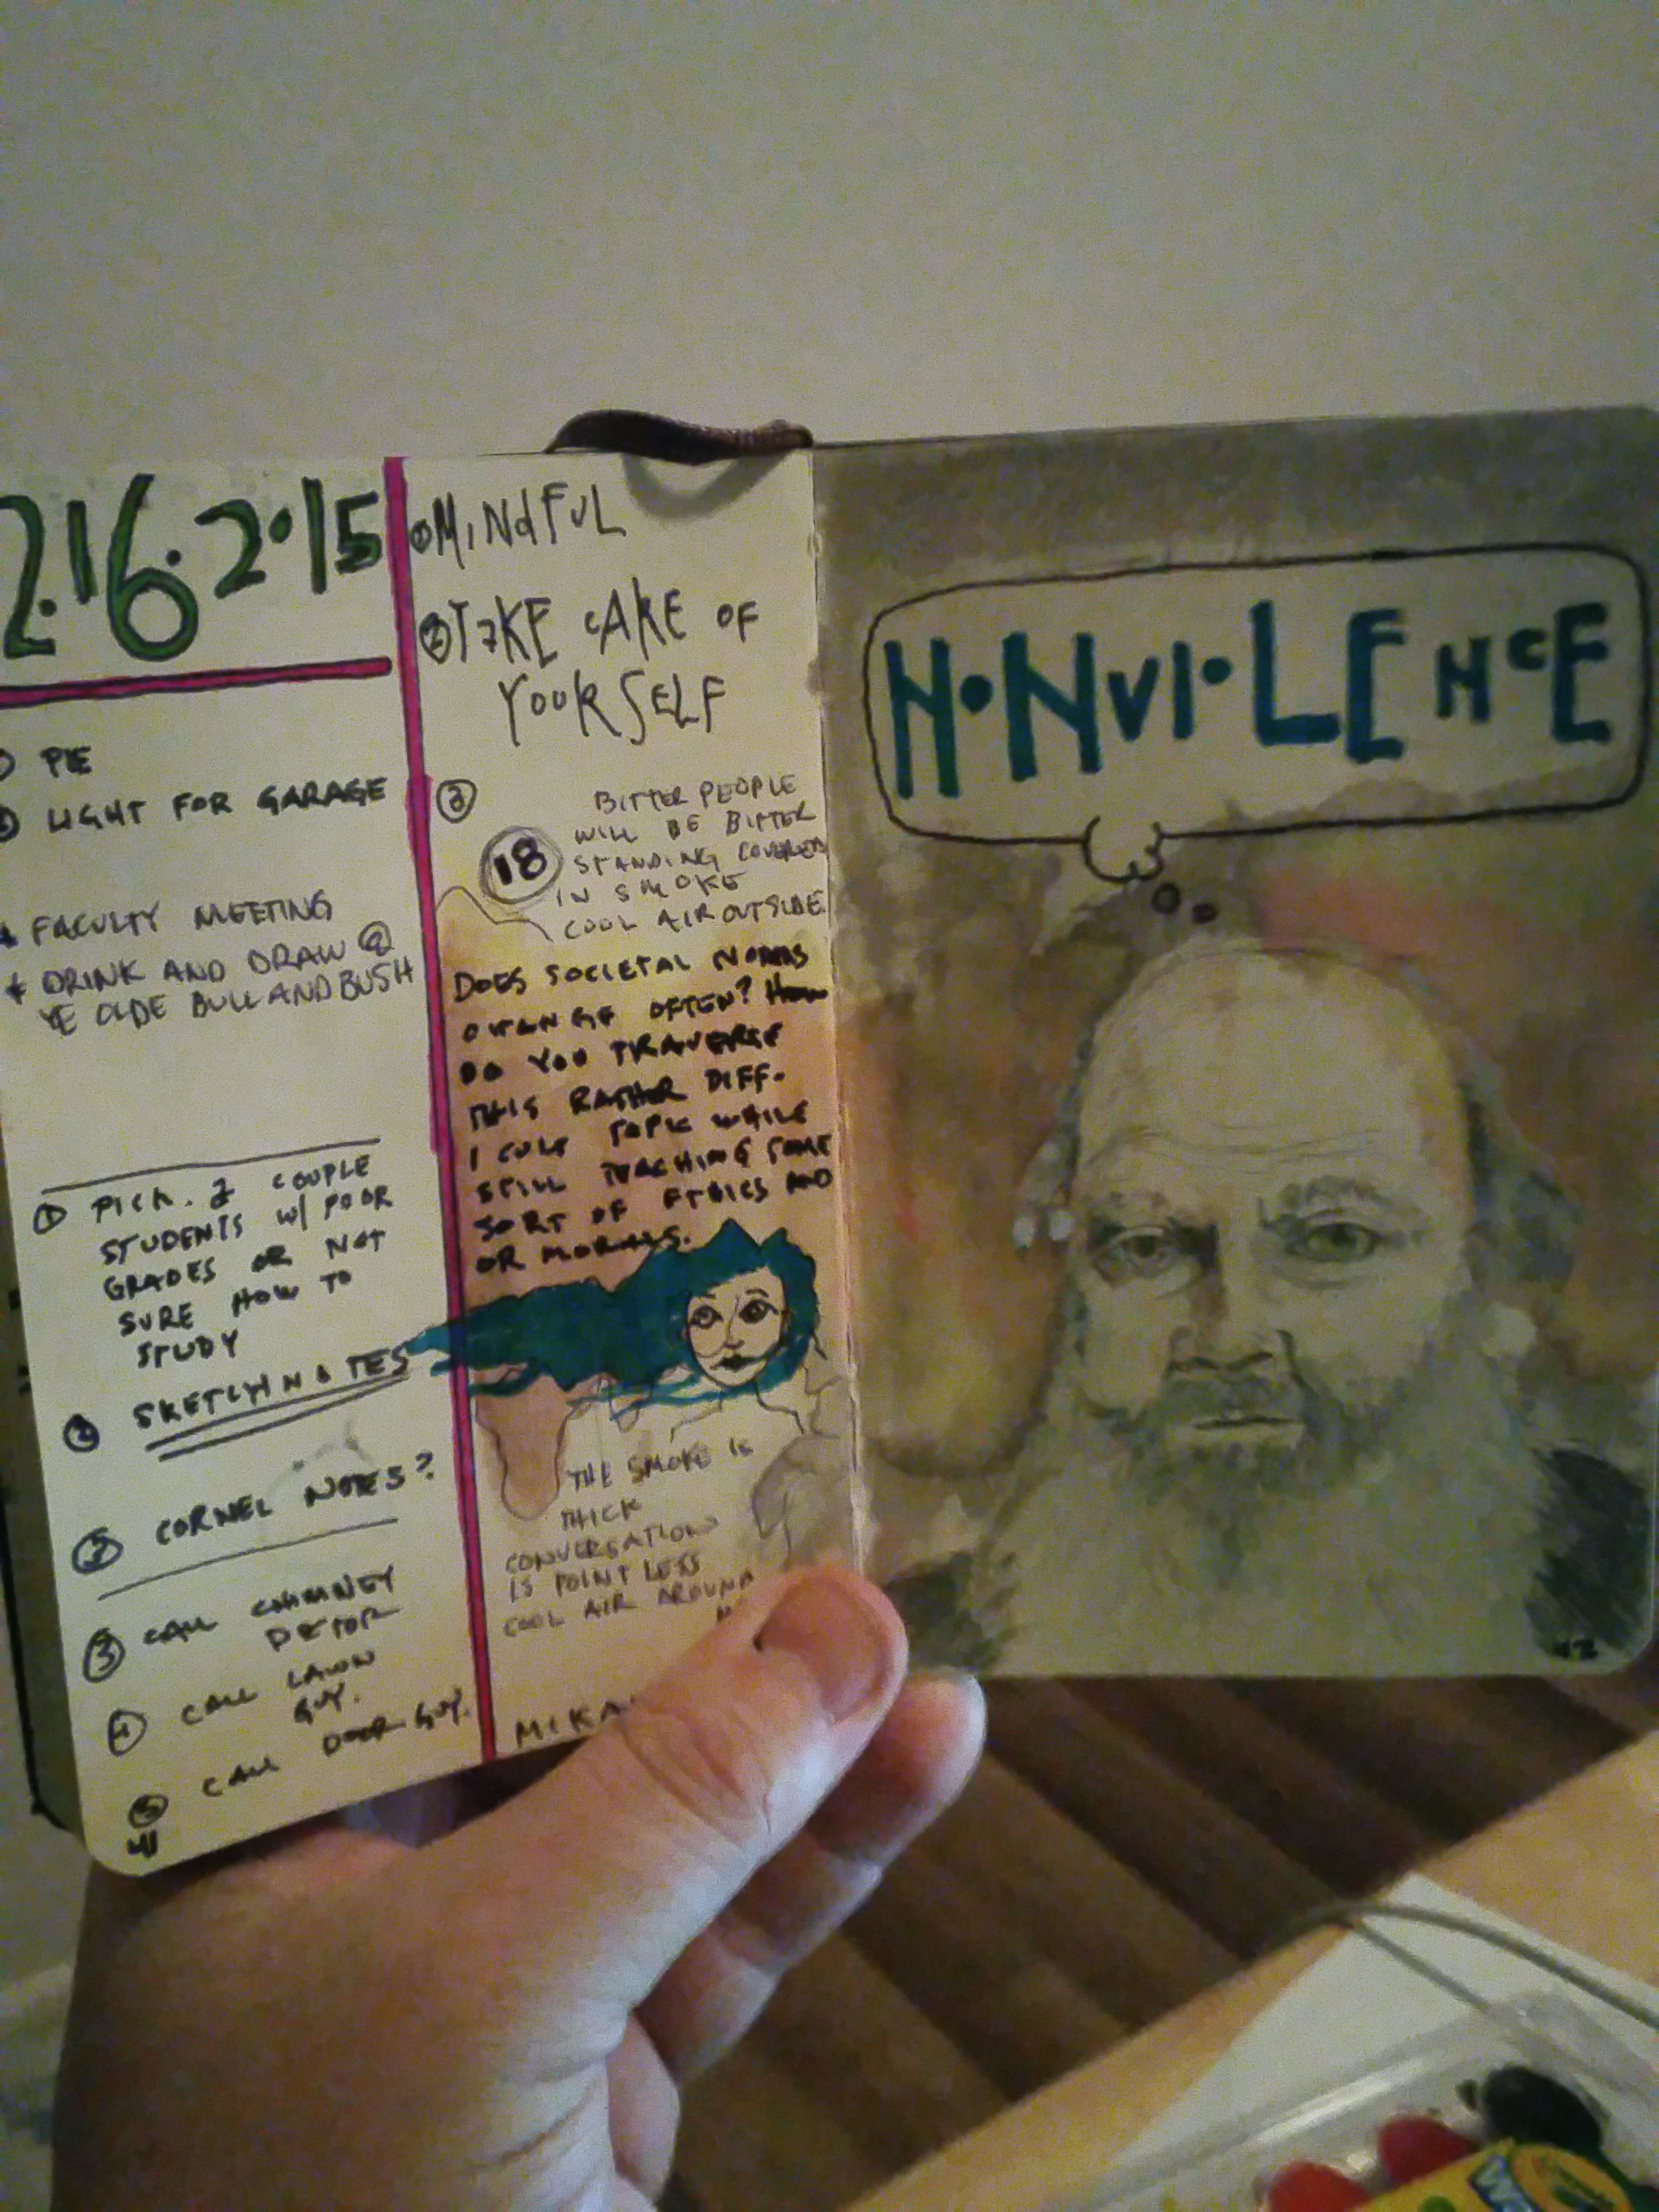 2.16.2.15
PIE
LIGHT FOR GARAGE
FACULTY MEETING
DRINK AND DRAW @
YE OLDE BULL AND BUSH
① PICK. 2 COUPLE
STUDENTS W/ POOR
GRADES OR NOT
SURE HOW TO
STUDY
② SKETCHNOTES
② CORNEL NOTES?
③ CALL CHIMNEY
④ CALL LAWN
GUY.
⑤ CALL DOOR GUY.
41
① MINdFUL
② TAKE CARE OF
YOURSELF
③
18
BITTER PEOPLE
WILL BE BITTER
STANDING COVERED
IN SMOKE
COOL AIR OUTSIDE
DOES SOCIETAL NORMS
CHANGE OFTEN? HOW
DO YOU TRAVERSE
THIS RATHER DIFF-
ICULT TOPIC WHILE
STILL TEACHING SOME
SORT OF ETHICS AND
OR MORALS.
THE SMOKE IS
THICK
CONVERSATION
IS POINTLESS
COOL AIR AROUND
MIKA
N•NVI•LENcE
42